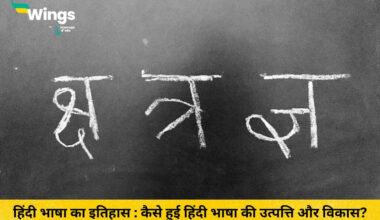 Wings
क्ष त्र ज्ञ
हिंदी भाषा का इतिहास : कैसे हुई हिंदी भाषा की उत्पत्ति और विकास?